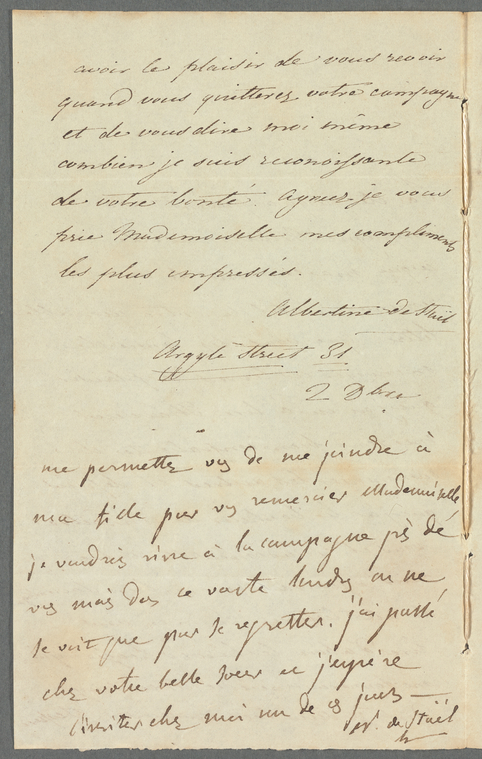 avoir le plaisir de vous revoir
quand vous quitterez votre campagne
et de vous dire moi même
combien je suis reconoissante
de votre bonté. agréez je vous
prie Mademoiselle mes compliments
les plus empressés.
Albertine de Staël
Argyle Street 31
2 Dbre
me permettez vs de me joindre à
ma fille pour vs remercier Mademoiselle
je voudrais vivre à la campagne près de
vs mais dans ce vaste londres on ne
se voit que pour se regretter. j'ai passé
chez votre belle soeur et j'espère
l'inviter chez moi un de ces jours —
N. de Staël
h